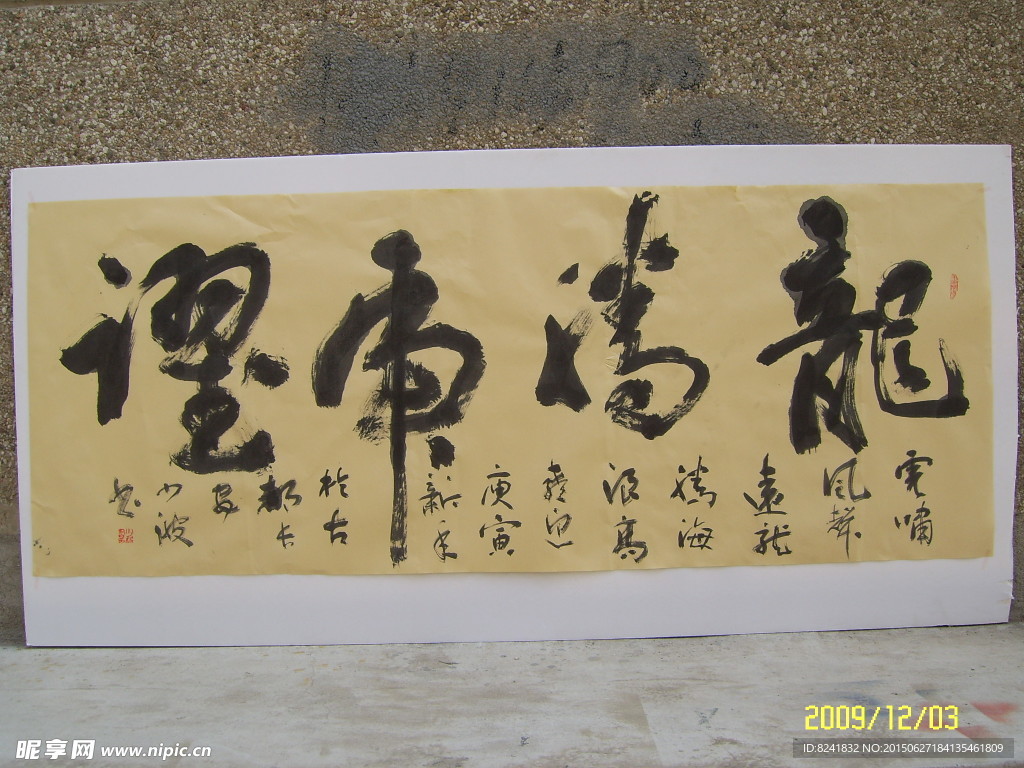 龍騰虎躍
虎嘯
風聲
遠龍
騰海
浪高
喜迎
庚寅
新年
於古
都長
安
少波
書
2009/12/03
昵享网 www.nipic.cn
ID:8241832 NO:20150627184135461809